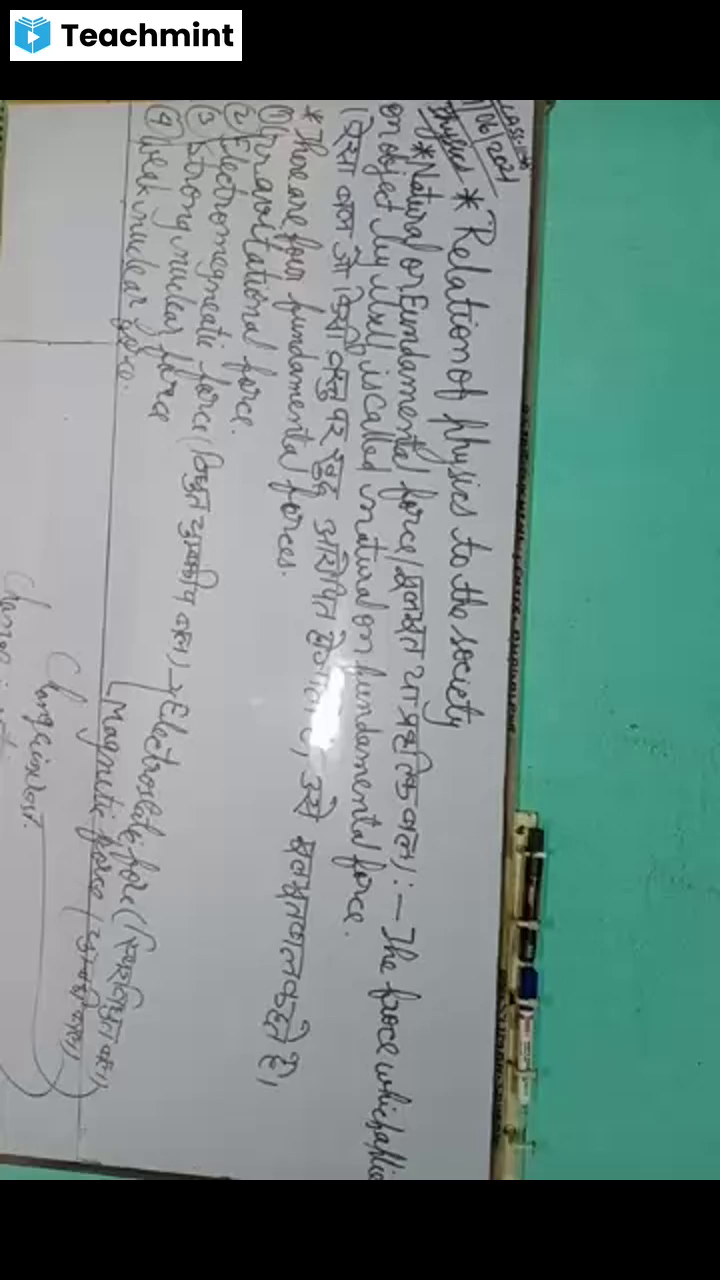 Teachmint
CLASS:-11th
06/2021
Physics * Relation of physics to the society
* Natural or Fundamental force (मूलभूत या प्राकृतिक बल) :- The froce which applie
on object by itself is called natural on fundamental force.
ऐसा बल जो किसी वस्तु पर खुद आरोपित हो उसे मूलभूत बल कहते हैं।
* There are four fundamental forces.
① Gravitational force.
② Electromegneatic force (विधुत चुम्बकीय बल) → Electrostatic force (स्थिरविधुत बल)
Magnetic force (चुम्बकीय बल)
③ Strong nuclear force
④ Weak nuclear force.